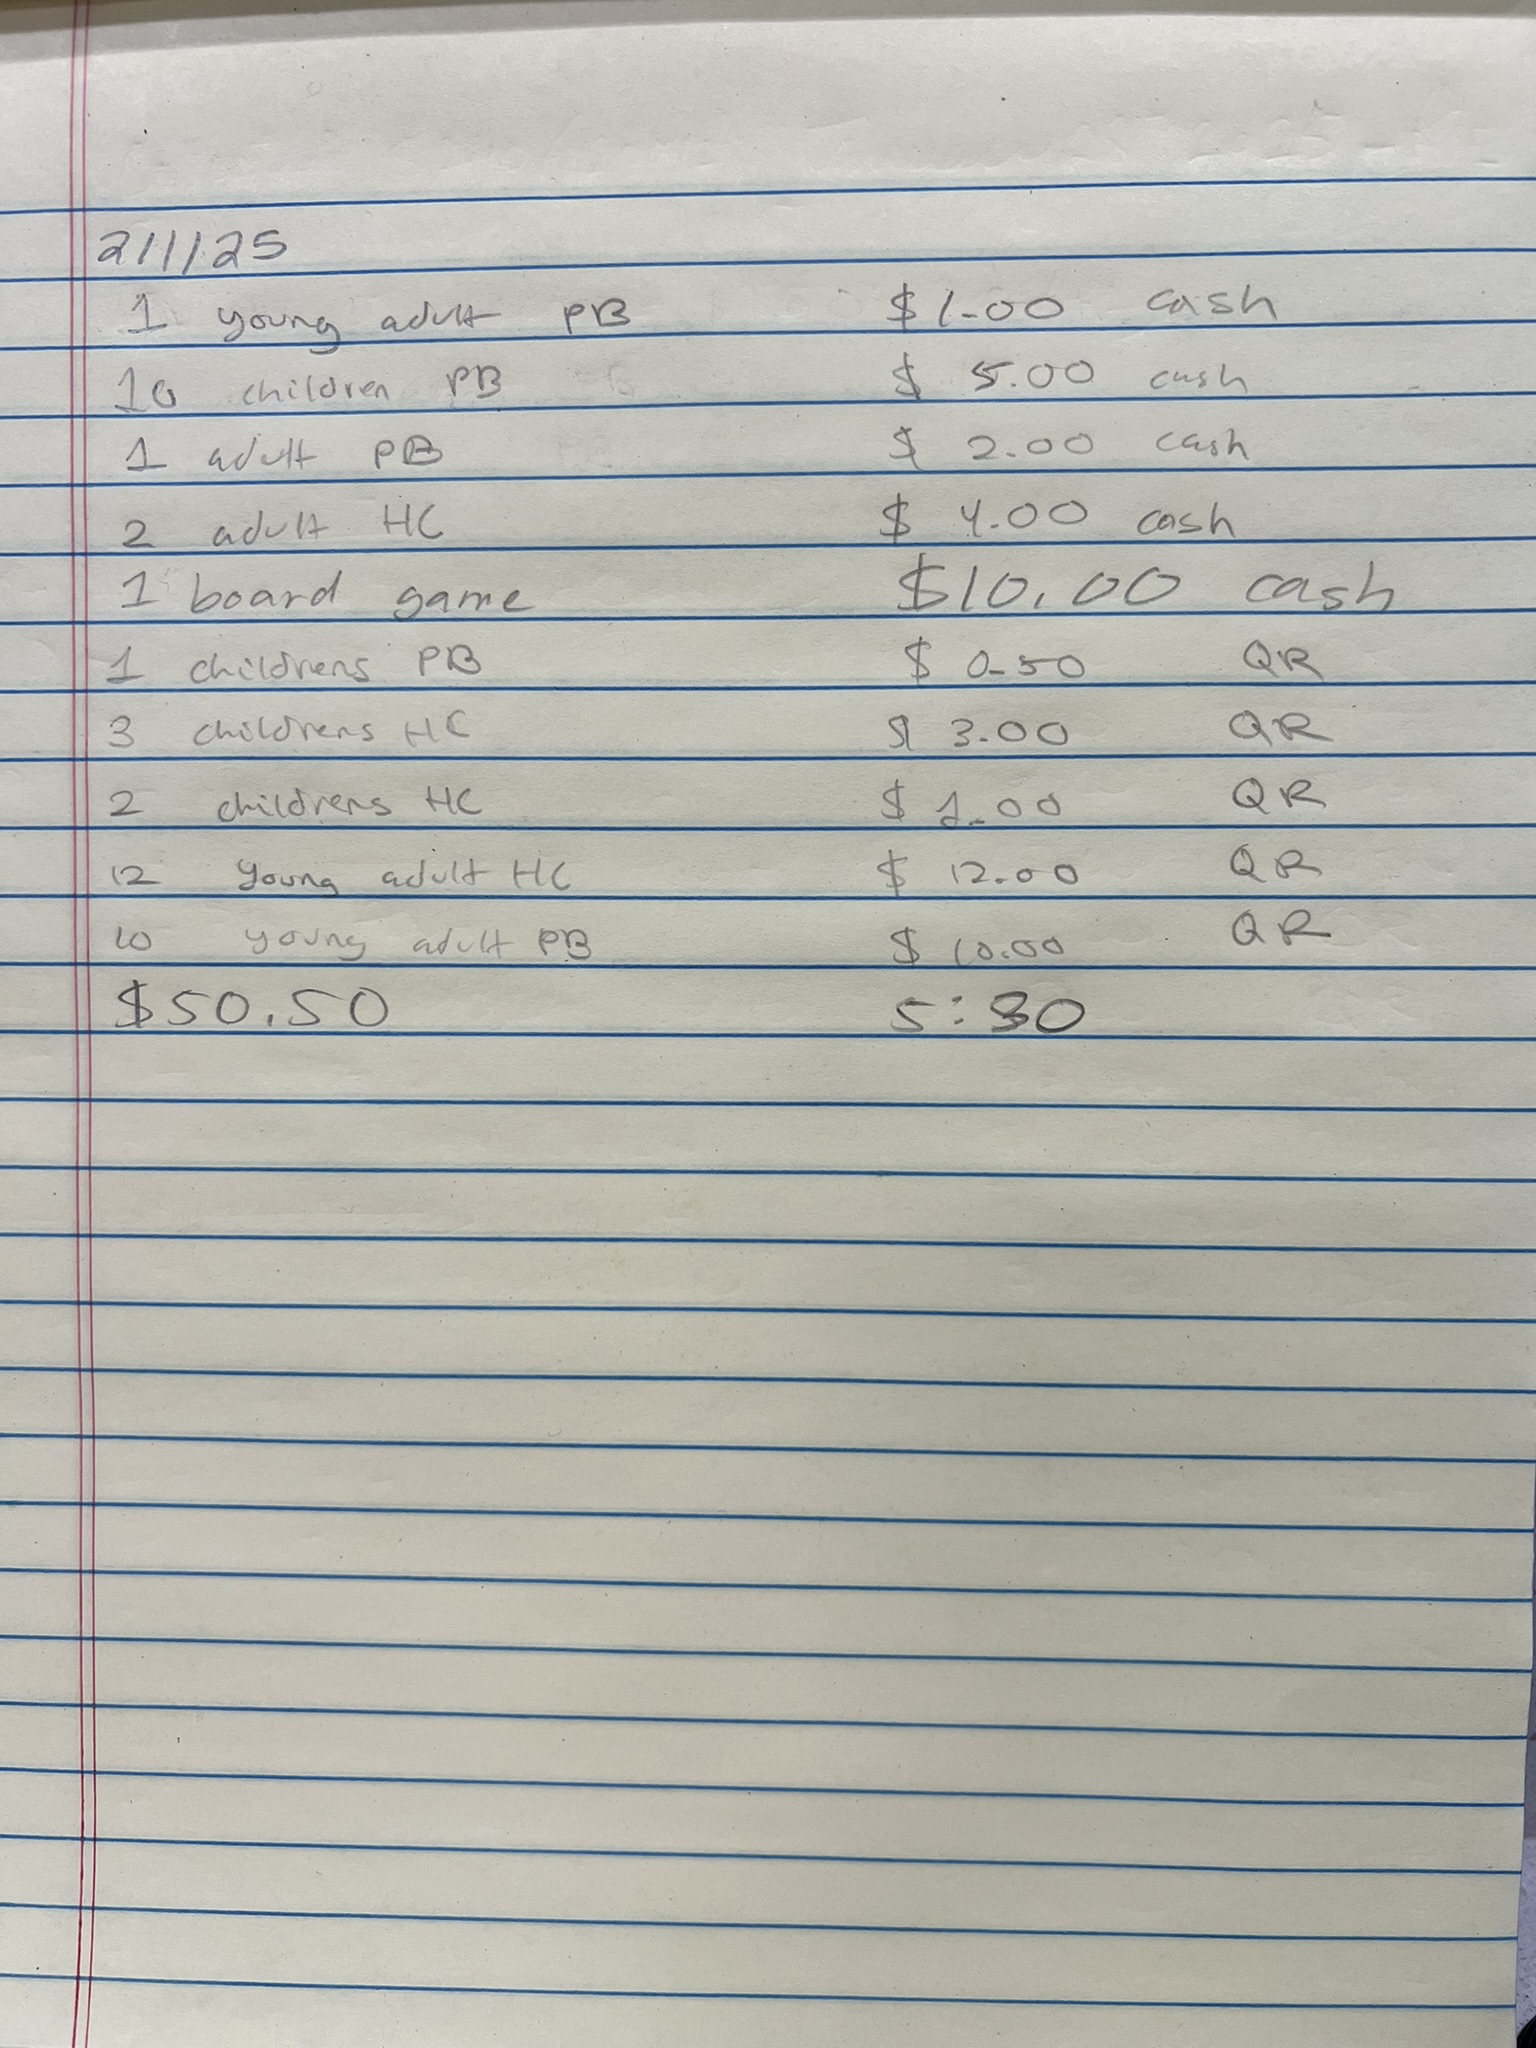 2/1/25
1 young adult PB $1.00 cash
10 children PB $ 5.00 cash
1 adult PB $ 2.00 cash
2 adult HC $ 4.00 cash
1 board game $10.00 cash
1 childrens PB $ 0.50 QR
3 childrens HC $ 3.00 QR
2 childrens HC $ .00 QR
12 young adult HC $ 12.00 QR
10 young adult PB $ 10.00 QR
$50.50 5:30